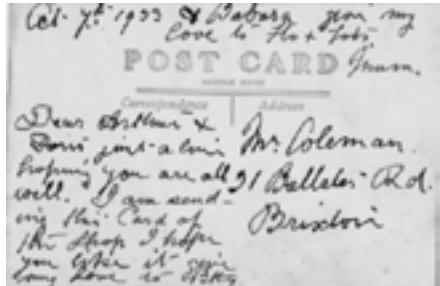 Oct. 7th 1933 & Babara give my
love to Flo +
Mum.
POST CARD
Correspondence
Address
Dear Arthur &
Doris just a line
hoping you are all
well. I am send-
ing this Card of
the Shop I hope
you like it give
long love to Betty
Mr. Coleman.
31 Rd.
Brixton